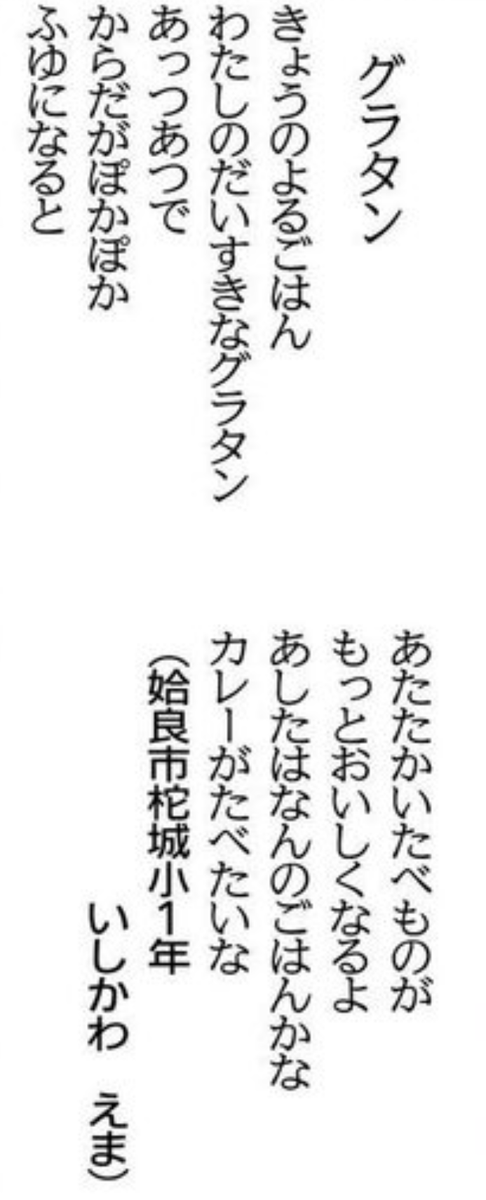 グラタン
きょうのよるごはん
わたしのだいすきなグラタン
あっつあつで
からだがぽかぽか
ふゆになると
あたたかいたべものが
もっとおいしくなるよ
あしたはなんのごはんかな
カレーがたべたいな
（姶良市柁城小1年
いしかわ　えま）